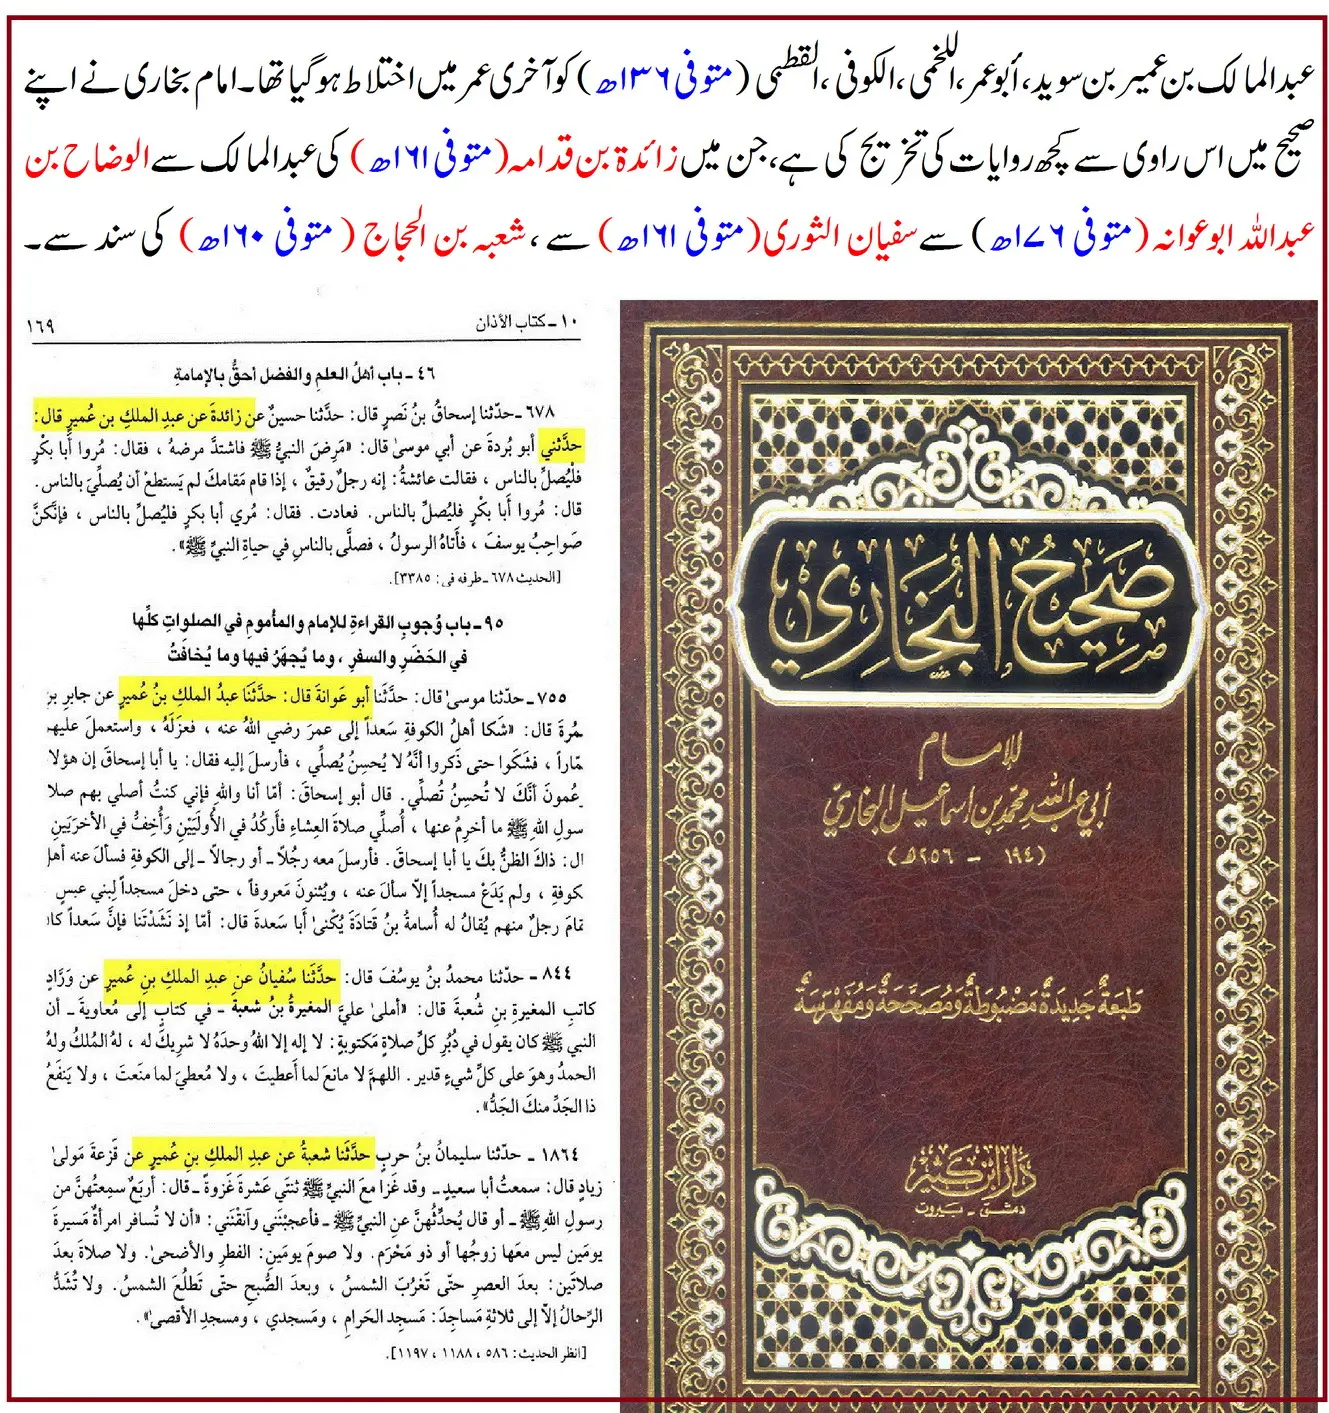 عبدالمالک بن عمیر بن سوید، أبو عمر، اللخمی، الکوفی، القطبی (متوفی ۱۳۶ھ) کو آخری عمر میں اختلاط ہوگیا تھا۔ امام بخاری نے اپنے
صحیح میں اس راوی سے کچھ روایات کی تخریج کی ہے، جن میں زائدۃ بن قدامہ (متوفی ۱۶۱ھ) کی عبدالمالک سے الوضاح بن
عبداللہ ابوعوانہ (متوفی ۱۷۶ھ) سے سفیان الثوری (متوفی ۱۶۱ھ) سے، شعبہ بن الحجاج (متوفی ۱۶۰ھ) کی سند سے۔
١٠ - كتاب الأذان ١٦٩
٤٦ - باب أهلُ العلمِ والفضل أحقُّ بالإمامةِ
٦٧٨ - حدّثنا إسحاقُ بنُ نَصرٍ قال: حدَّثنا حسينٌ عن زائدةَ عن عبدِ الملكِ بن عُميرٍ قال:
حدَّثني أبو بُردةَ عن أبي موسىٰ قال: «مَرِضَ النبيُّ ﷺ فاشتدَّ مرضهُ ، فقال: مُروا أبا بكْرٍ
فلْيُصلِّ بالناس ، فقالت عائشةُ: إنه رجلٌ رقيقٌ ، إذا قام مَقامكَ لم يَستطعْ أن يُصلّيَ بالناس.
قال: مُروا أبا بكْرٍ فليُصلِّ بالناس. فعادت. فقال: مُري أبا بكرٍ فليُصلِّ بالناس ، فإنَّكنَّ
صَواحِبُ يوسفَ ، فأتاهُ الرسولُ ، فصلَّى بالناسِ في حياةِ النبيِّ ﷺ».
[الحديث ٦٧٨ - طرفه في: ٣٣٨٥].
٩٥ - باب وُجوبِ القراءةِ للإمامِ والمأمومِ في الصلواتِ كلِّها
في الحَضَرِ والسفرِ ، وما يُجهَرُ فيها وما يُخافَتُ
٧٥٥ - حدّثنا موسىٰ قال: حدَّثَنا أبو عَوانةَ قال: حدَّثَنَا عبدُ الملكِ بنُ عُميرٍ عن جابرِ بنِ
مُرةَ قال: «شَكا أهلُ الكوفةِ سَعداً إلى عمرَ رضي اللهُ عنه ، فعزَلَهُ ، واستعملَ عليهم
مّاراً ، فشَكَوا حتى ذَكروا أنَّهُ لا يُحسِنُ يُصلّي ، فأرسلَ إليه فقال: يا أبا إسحاقَ إن هؤلا
عُمونَ أنكَ لا تُحسِنُ تُصلّي. قال أبو إسحاقَ: أمّا أنا واللهِ فإني كنتُ أصلي بهم صلا
سولِ اللهِ ﷺ ما أخرِمُ عنها ، أُصلّي صلاةَ العِشاءِ فأركُدُ في الأُولَيَيْنِ وأُخِفُّ في الأخرَيَينِ
ال: ذاكَ الظنُّ بكَ يا أبا إسحاقَ. فأرسلَ معه رجُلًا ـ أو رجالاً ـ إلى الكوفةِ فسألَ عنه أهلَ
كوفةِ ، ولم يَدَعْ مسجداً إلّا سألَ عنه ، ويُثنونَ مَعروفاً ، حتى دخلَ مسجداً لِبني عبسٍ
قامَ رجلٌ منهم يُقالُ له أُسامةُ بنُ قَتادَةَ يُكْنىٰ أبا سعدةَ قال: أمّا إذ نَشَدْتَنا فإنَّ سَعداً كان
٨٤٤ - حدّثنا محمدُ بنُ يوسُفَ قال: حدَّثَنا سُفيانُ عن عبدِ الملكِ بنِ عُميرٍ عن وَرَّادٍ
كاتبِ المغيرةِ بنِ شُعبةَ قال: «أملىٰ عليَّ المغيرةُ بنُ شعبةَ - في كتابٍ إلى مُعاويةَ - أن
النبي ﷺ كان يقول في دُبُرِ كلِّ صلاةٍ مَكتوبةٍ: لا إله إلا اللهُ وحدَهُ لا شريكَ له ، لهُ المُلكُ ولهُ
الحمدُ وهوَ على كلِّ شيءٍ قدير. اللهمَّ لا مانعَ لما أعطيتَ ، ولا مُعطيَ لما منَعتَ ، ولا يَنفَعُ
ذا الجَدِّ منكَ الجَدُّ».
١٨٦٤ - حدّثنا سليمانُ بنُ حربٍ حدَّثَنا شعبةُ عن عبدِ الملكِ بنِ عُميرٍ عن قَزعةَ مَولىٰ
زيادٍ قال: سمعتُ أبا سعيدٍ ـ وقد غَزا معَ النبيِّ ﷺ ثنتَي عَشرةَ غَزوةً ـ قال: أربَعٌ سمِعتُهنَّ من
رسولِ اللهِ ﷺ ـ أو قال يُحدِّثُهنَّ عنِ النبيِّ ﷺ ـ فأعجبْنَني وآنقْنَني: «أن لا تُسافرَ امرأةٌ مَسيرةَ
يومَين ليس معَها زوجُها أو ذو مَحْرَمٍ. ولا صومَ يومَينِ: الفطرِ والأضحىٰ. ولا صلاةَ بعدَ
صلاتَينِ: بعدَ العصرِ حتّى تَغرُبَ الشمسُ ، وبعدَ الصُّبحِ حتّى تَطلُعَ الشمسُ. ولا تُشَدُّ
الرِّحالُ إلّا إلى ثلاثةِ مَساجِدَ: مَسجِدِ الحَرامِ ، ومَسجدي ، ومسجدِ الأقصىٰ».
[انظر الحديث: ٥٨٦ ، ١١٨٨ ، ١١٩٧].
صَحِيحُ البُخَارِي
للإمام
أبي عبد الله محمد بن إسماعيل البخاري
(١٩٤ - ٢٥٦ هـ)
طَبعَةٌ جَدِيدَةٌ مَضْبُوطَةٌ وَمُصَحَّحَةٌ وَمُفَهْرَسَةٌ
دَارُ ابْنِ كَثِير
دمشق - بيروت